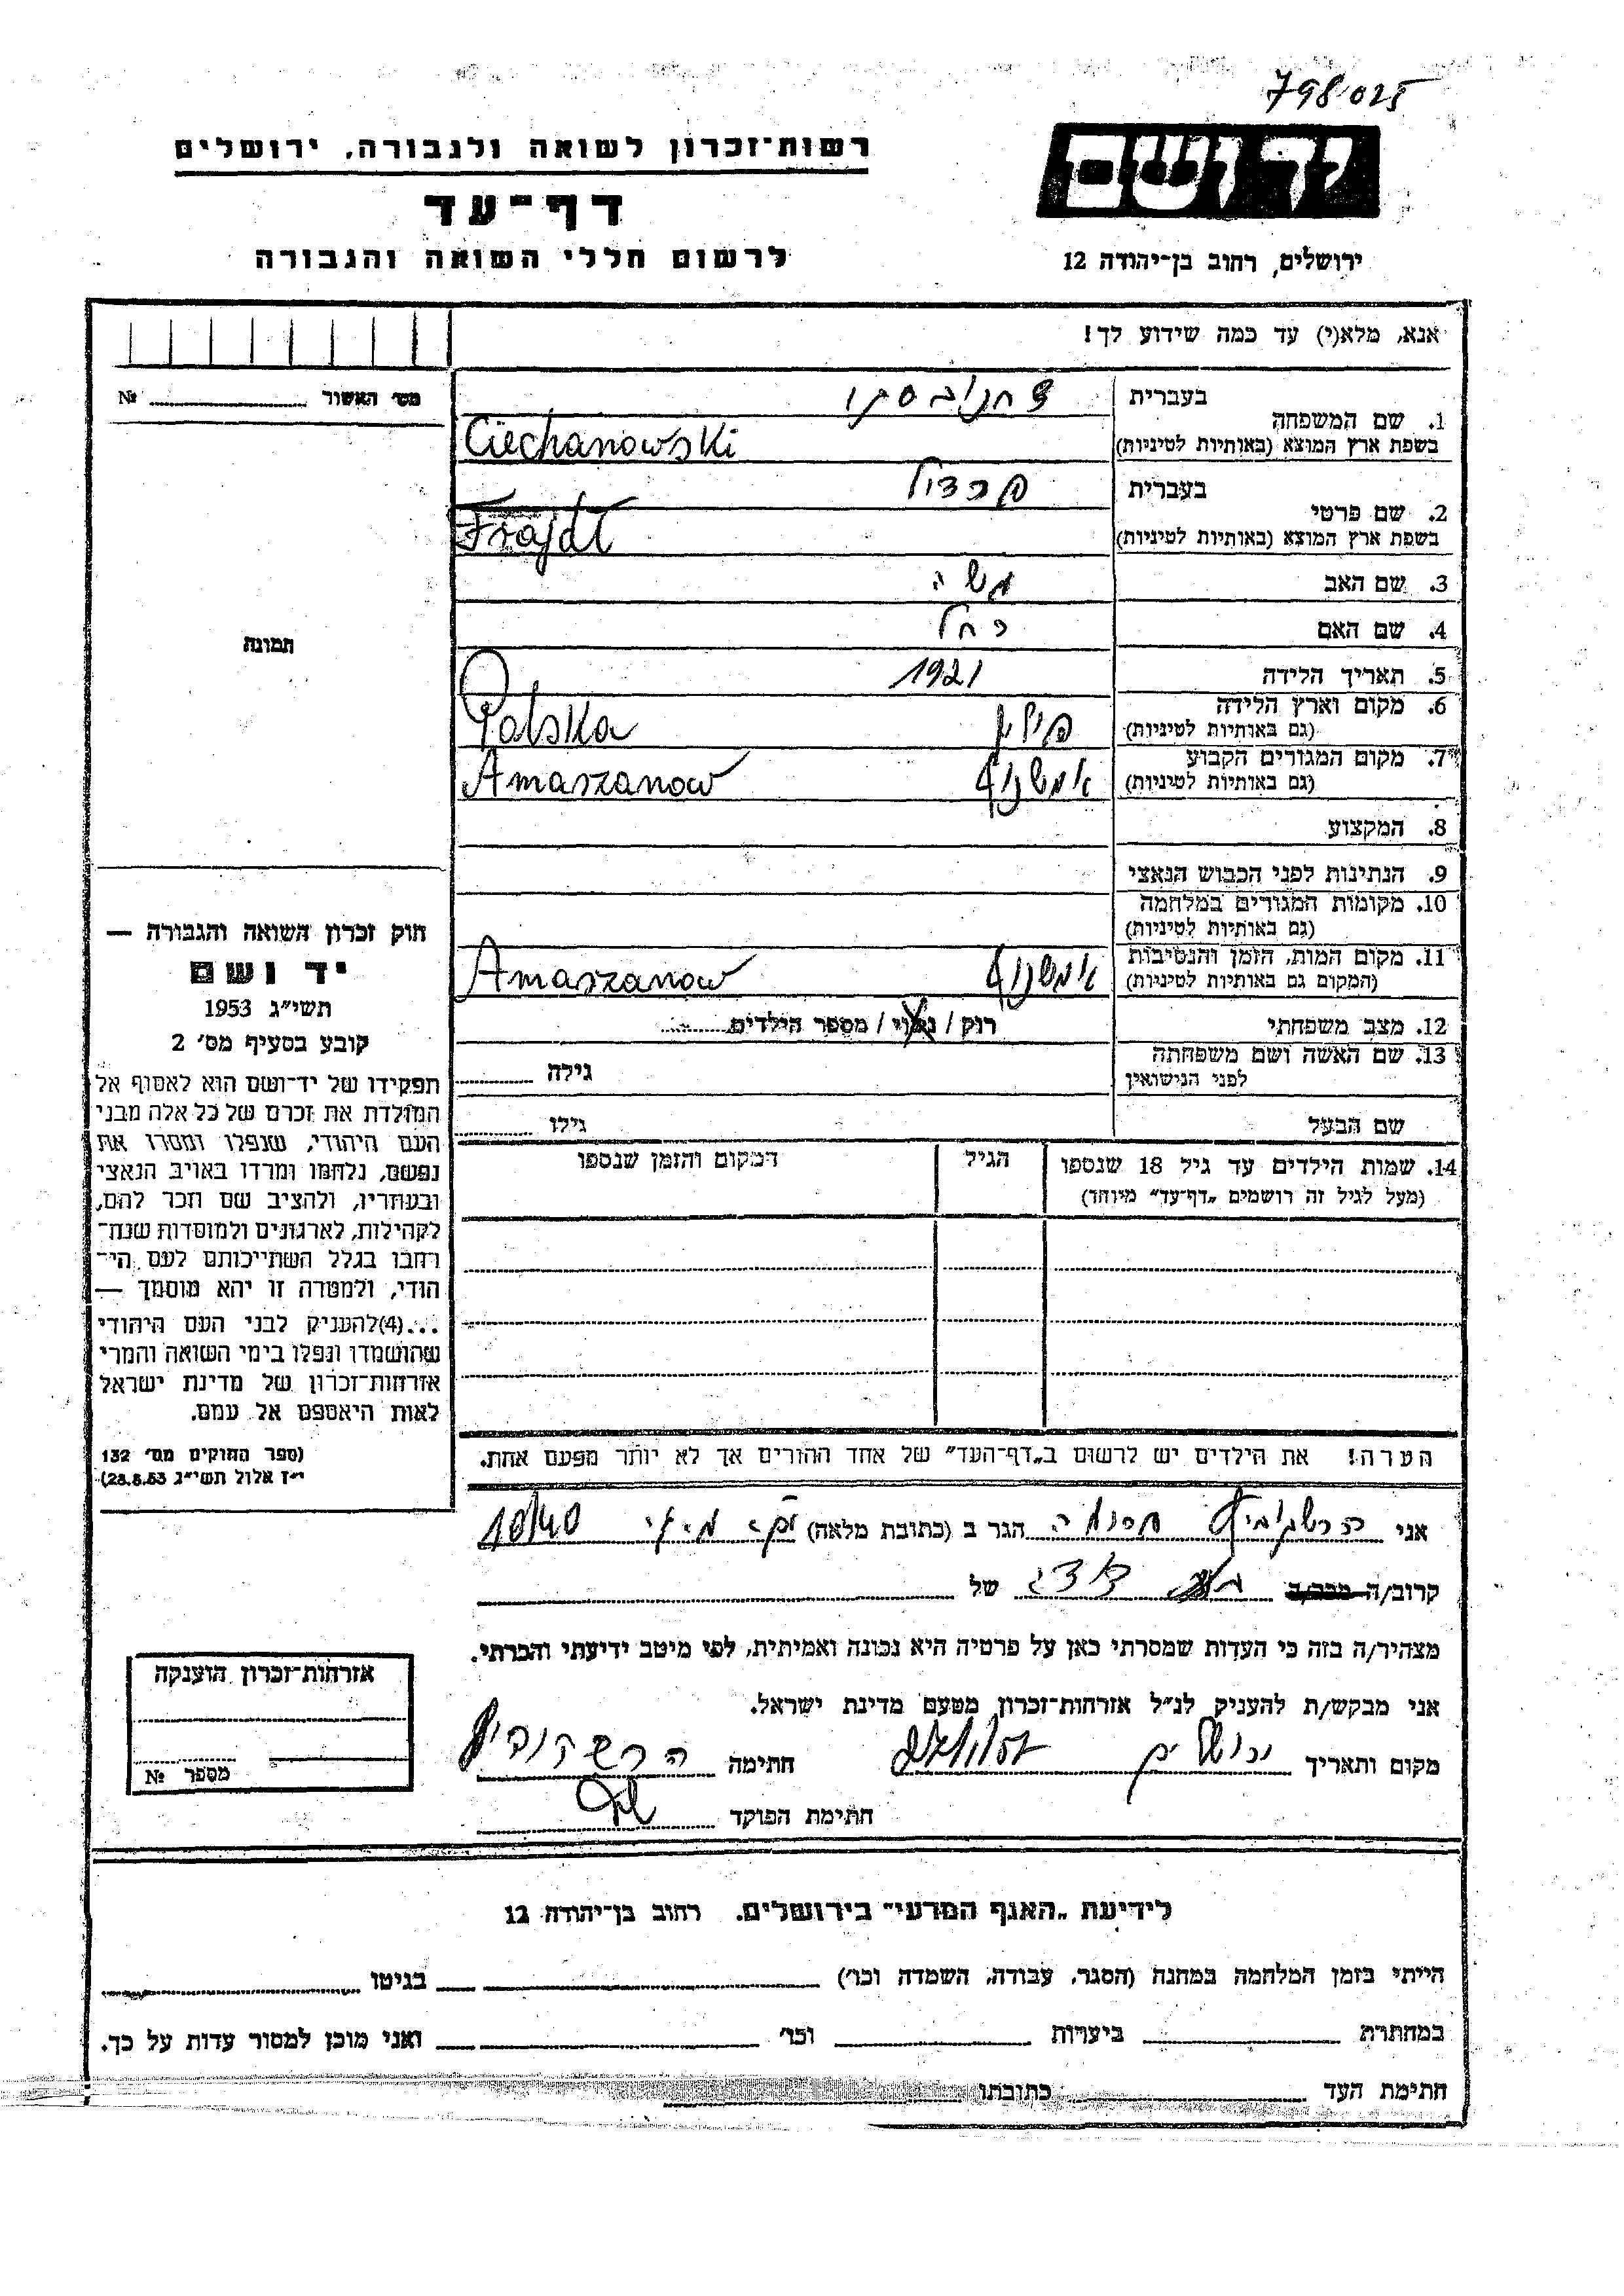 798025
רשות־זכרון לשואה ולגבורה, ירושלים
יד ושם
דף־עד
לרשום חללי השואה והגבורה
ירושלים, רחוב בן־יהודה 12
אנא, מלא(י) עד כמה שידוע לך!
מס׳ האשור № ........
1. שם המשפחה
בעברית
צחנובסקי
בשפת ארץ המוצא (באותיות לטיניות)
Ciechanowski
2. שם פרטי
בעברית
פרדיל
בשפת ארץ המוצא (באותיות לטיניות)
Frajdl
3. שם האב משה
4. שם האם רחל
תמונה
5. תאריך הלידה 1921
6. מקום וארץ הלידה
(גם באותיות לטיניות) פולין Polska
7. מקום המגורים הקבוע
(גם באותיות לטיניות) אמשנוב Amaszanow
8. המקצוע
9. הנתינות לפני הכבוש הנאצי
10. מקומות המגורים במלחמה
(גם באותיות לטיניות)
11. מקום המות, הזמן והנסיבות
(המקום גם באותיות לטיניות) אמשנוב Amaszanow
12. מצב משפחתי רוק / נשוי / מספר הילדים
13. שם האשה ושם משפחתה
לפני הנישואין גילה
שם הבעל גילו
14. שמות הילדים עד גיל 18 שנספו
(מעל לגיל זה רושמים „דף־עד״ מיוחד)
הגיל
המקום והזמן שנספו
חוק זכרון השואה והגבורה —
יד ושם
תשי״ג 1953
קובע בסעיף מס׳ 2
תפקידו של יד־ושם הוא לאסוף אל
המולדת את זכרם של כל אלה מבני
העם היהודי, שנפלו ומסרו את
נפשם, נלחמו ומרדו באויב הנאצי
ובעוזריו, ולהציב שם וזכר להם,
לקהילות, לארגונים ולמוסדות שנח־
רבו בגלל השתייכותם לעם הי־
הודי, ולמטרה זו יהא מוסמך —
...(4)להעניק לבני העם היהודי
שהושמדו ונפלו בימי השואה והמרי
אזרחות־זכרון של מדינת ישראל
לאות היאספם אל עמם.
(ספר החוקים מס׳ 132
י״ז אלול תשי״ג 28.8.53)
הערה! את הילדים יש לרשום ב„דף־העד״ של אחד ההורים אך לא יותר מפעם אחת.
אני הרשקוביץ הגר ב (כתובת מלאה) 10/40
קרוב/ה מכר/ה של
מצהיר/ה בזה כי העדות שמסרתי כאן על פרטיה היא נכונה ואמיתית, לפי מיטב ידיעתי והכרתי.
אני מבקש/ת להעניק לנ״ל אזרחות־זכרון מטעם מדינת ישראל.
מקום ותאריך ירושלים חתימה הרשקוביץ
חתימת הפוקד
אזרחות־זכרון הוענקה
מספר №
לידיעת „האגף המדעי״ בירושלים, רחוב בן־יהודה 12
הייתי בזמן המלחמה במחנה (הסגר, עבודה, השמדה וכו׳) בגיטו
במחתרת ביערות וכו׳ ואני מוכן למסור עדות על כך.
חתימת העד כתובתו